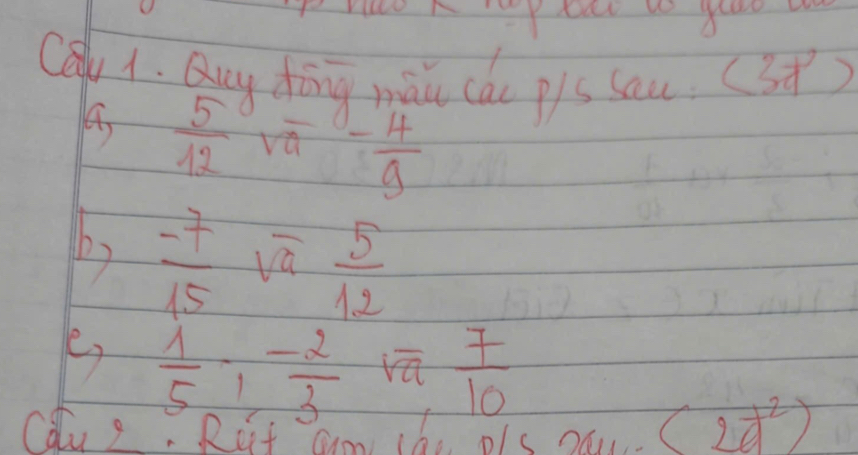 Câu 1. Quy đồng mẫu các p/s sau: (3đ)
a, 5/12 và -4/9
b, -7/15 và 5/12
c, 1/5 ; -2/3 và 7/10
Câu 2. Rút gọn các p/s sau. (2đ)